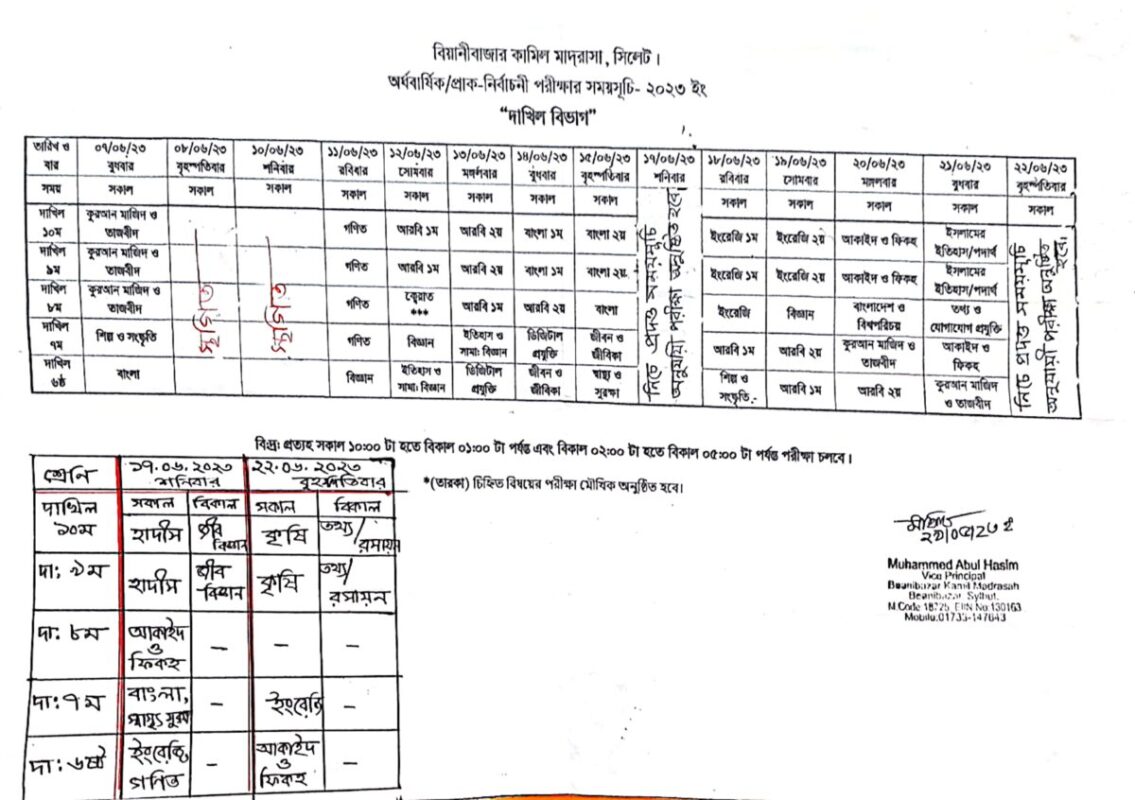 বিয়ানীবাজার কামিল মাদ্‌রাসা, সিলেট।
অর্ধবার্ষিক/প্রাক-নির্বাচনী পরীক্ষার সময়সূচি- ২০২৩ ইং
“দাখিল বিভাগ”
তারিখ ও বার ০৭/০৬/২৩ বুধবার ০৮/০৬/২৩ বৃহস্পতিবার ১০/০৬/২৩ শনিবার ১১/০৬/২৩ রবিবার ১২/০৬/২৩ সোমবার ১৩/০৬/২৩ মঙ্গলবার ১৪/০৬/২৩ বুধবার ১৫/০৬/২৩ বৃহস্পতিবার ১৭/০৬/২৩ শনিবার ১৮/০৬/২৩ রবিবার ১৯/০৬/২৩ সোমবার ২০/০৬/২৩ মঙ্গলবার ২১/০৬/২৩ বুধবার ২২/০৬/২৩ বৃহস্পতিবার
সময় সকাল সকাল সকাল সকাল সকাল সকাল সকাল সকাল সকাল সকাল সকাল সকাল সকাল
দাখিল ১০ম কুরআন মাজিদ ও তাজবীদ গণিত আরবি ১ম আরবি ২য় বাংলা ১ম বাংলা ২য় ইংরেজি ১ম ইংরেজি ২য় আকাইদ ও ফিকহ ইসলামের ইতিহাস/পদার্থ
দাখিল ৯ম কুরআন মাজিদ ও তাজবীদ গণিত আরবি ১ম আরবি ২য় বাংলা ১ম বাংলা ২য় ইংরেজি ১ম ইংরেজি ২য় আকাইদ ও ফিকহ ইসলামের ইতিহাস/পদার্থ
দাখিল ৮ম কুরআন মাজিদ ও তাজবীদ গণিত ক্বেরাত *** আরবি ১ম আরবি ২য় বাংলা ইংরেজি বিজ্ঞান বাংলাদেশ ও বিশ্বপরিচয় তথ্য ও যোগাযোগ প্রযুক্তি
দাখিল ৭ম শিল্প ও সংস্কৃতি গণিত বিজ্ঞান ইতিহাস ও সামা: বিজ্ঞান ডিজিটাল প্রযুক্তি জীবন ও জীবিকা আরবি ১ম আরবি ২য় কুরআন মাজিদ ও তাজবীদ আকাইদ ও ফিকহ
দাখিল ৬ষ্ঠ বাংলা বিজ্ঞান ইতিহাস ও সামা: বিজ্ঞান ডিজিটাল প্রযুক্তি জীবন ও জীবিকা স্বাস্থ্য ও সুরক্ষা শিল্প ও সংস্কৃতি আরবি ১ম আরবি ২য় কুরআন মাজিদ ও তাজবীদ
স্থগিত
স্থগিত
নিচে প্রদত্ত সময়সূচি
অনুযায়ী পরীক্ষা অনুষ্ঠিত হবে।
নিচে প্রদত্ত সময়সূচি
অনুযায়ী পরীক্ষা অনুষ্ঠিত হবে।
বি:দ্র: প্রত্যহ সকাল ১০:০০ টা হতে বিকাল ০১:০০ টা পর্যন্ত এবং বিকাল ০২:০০ টা হতে বিকাল ০৫:০০ টা পর্যন্ত পরীক্ষা চলবে।
*(তারকা) চিহ্নিত বিষয়ের পরীক্ষা মৌখিক অনুষ্ঠিত হবে।
শ্রেনি ১৭.০৬.২০২৩ শনিবার ২২.০৬.২০২৩ বৃহস্পতিবার
সকাল বিকাল সকাল বিকাল
দাখিল ১০ম হাদীস জীব বিজ্ঞান কৃষি তথ্য/রসায়ন
দা: ৯ম হাদীস জীব বিজ্ঞান কৃষি তথ্য/রসায়ন
দা: ৮ম আকাইদ ও ফিকহ – – –
দা: ৭ম বাংলা, স্বাস্থ্য সুরক্ষা – ইংরেজি –
দা: ৬ষ্ঠ ইংরেজি, গণিত – আকাইদ ও ফিকহ –
Muhammed Abul Hasim
Vice Principal
Beanibazar Kamil Madrasah
Beanibazar, Sylhet.
M.Code 18725 EIIN No:130163
Mobile:01733-147643